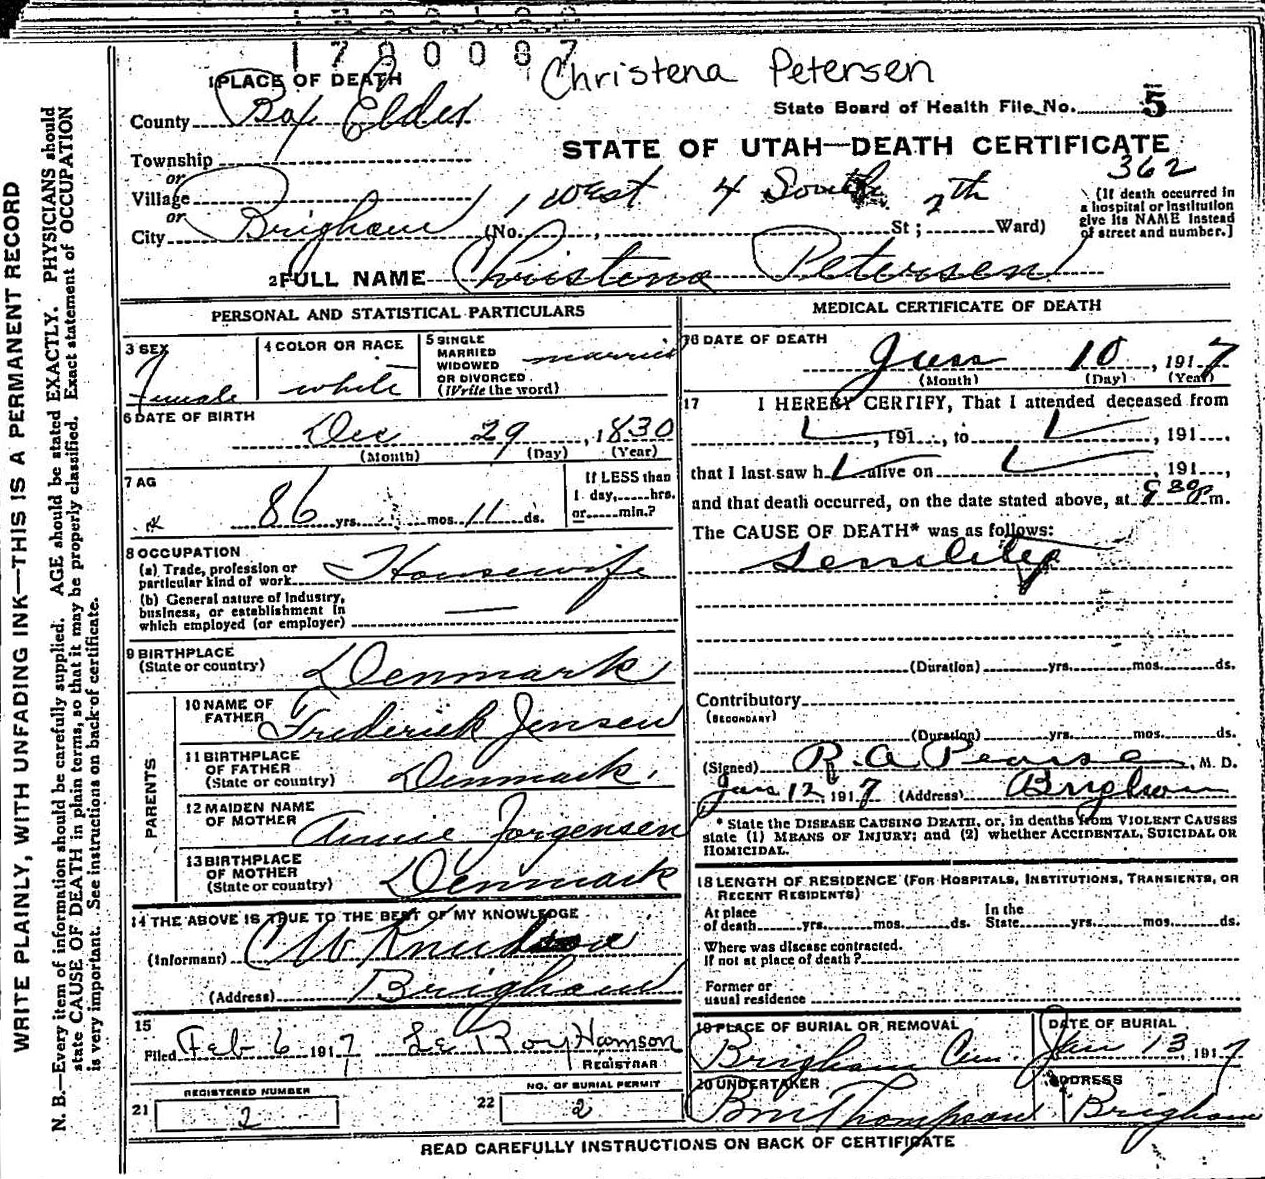 1780087
Christena Petersen
1 PLACE OF DEATH
State Board of Health File No. 5
County Box Elder
STATE OF UTAH—DEATH CERTIFICATE
362
Township
or
Village
or
City Brigham (No. 1 West 4 South St; 2th Ward)
(If death occurred in
a hospital or institution
give its NAME instead
of street and number.]
2 FULL NAME Christena Petersen
PERSONAL AND STATISTICAL PARTICULARS
3 SEX
Female
4 COLOR OR RACE
white
5 SINGLE
MARRIED
WIDOWED
OR DIVORCED
(Write the word)
married
6 DATE OF BIRTH
Dec 29, 1830
(Month) (Day) (Year)
7 AG
86 yrs. mos. 11 ds.
If LESS than
1 day,......hrs.
or......min.?
8 OCCUPATION
(a) Trade, profession or
particular kind of work Housewife
(b) General nature of industry,
business, or establishment in
which employed (or employer) —
9 BIRTHPLACE
(State or country) Denmark
PARENTS
10 NAME OF
FATHER Frederick Jensen
11 BIRTHPLACE
OF FATHER
(State or country) Denmark.
12 MAIDEN NAME
OF MOTHER Annie Jorgensen
13 BIRTHPLACE
OF MOTHER
(State or country) Denmark
14 THE ABOVE IS TRUE TO THE BEST OF MY KNOWLEDGE
(Informant) C W Knudson
(Address) Brigham
15
Filed Feb 6 1917 Le Roy Hamson
REGISTRAR
REGISTERED NUMBER
21 2
NO. OF BURIAL PERMIT
22 2
MEDICAL CERTIFICATE OF DEATH
16 DATE OF DEATH
Jan 10, 1917
(Month) (Day) (Year)
17 I HEREBY CERTIFY, That I attended deceased from
, 191..., to , 191...,
that I last saw h alive on , 191...,
and that death occurred, on the date stated above, at 30 P m.
The CAUSE OF DEATH* was as follows:
Senility
(Duration) yrs. mos. ds.
Contributory
(SECONDARY)
(Duration) yrs. mos. ds.
(Signed) R. A Pearse, M. D.
Jan 12, 1917 (Address) Brigham
* State the DISEASE CAUSING DEATH, or, in deaths from VIOLENT CAUSES
state (1) MEANS OF INJURY; and (2) whether ACCIDENTAL, SUICIDAL OR
HOMICIDAL.
18 LENGTH OF RESIDENCE (FOR HOSPITALS, INSTITUTIONS, TRANSIENTS, OR
RECENT RESIDENTS)
At place
of death......yrs......mos......ds.
In the
State......yrs......mos......ds.
Where was disease contracted.
If not at place of death?
Former or
usual residence
19 PLACE OF BURIAL OR REMOVAL
Brigham Cem.
DATE OF BURIAL
Jan 13, 1917
20 UNDERTAKER
Thompson
ADDRESS
Brigham
READ CAREFULLY INSTRUCTIONS ON BACK OF CERTIFICATE
WRITE PLAINLY, WITH UNFADING INK—THIS IS A PERMANENT RECORD
N. B.—Every item of information should be carefully supplied. AGE should be stated EXACTLY. PHYSICIANS should
state CAUSE OF DEATH in plain terms, so that it may be properly classified. Exact statement of OCCUPATION
is very important. See instructions on back of certificate.